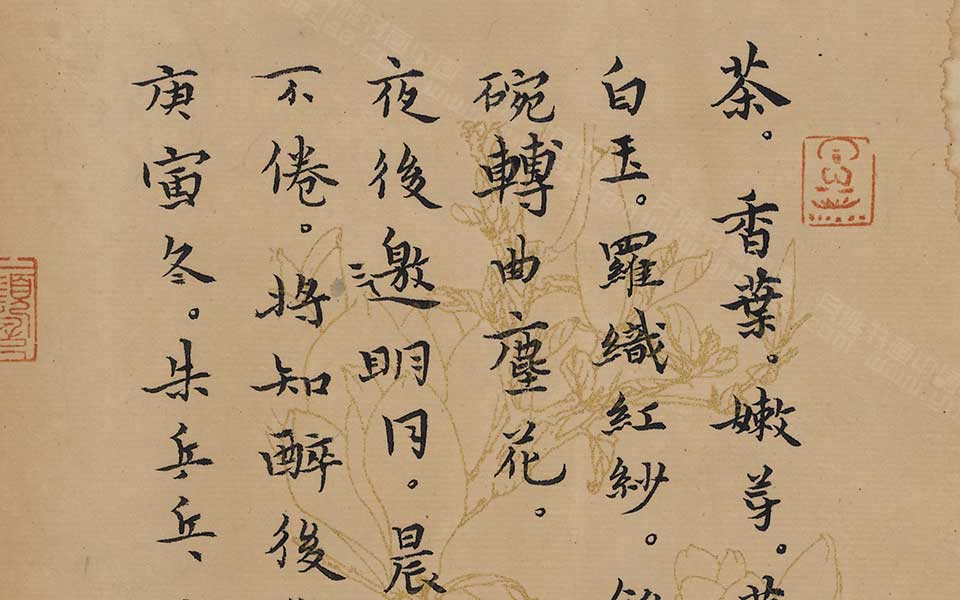 茶。香葉。嫩芽。
白玉。羅織紅紗。
碗轉曲塵花。
夜後邀明月。晨
不倦。將知醉後
庚寅冬。朱